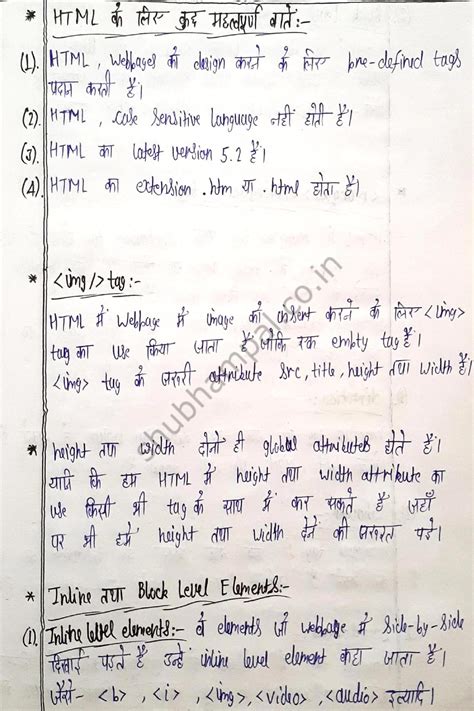 * HTML के लिए कुछ महत्वपूर्ण बातें:-
(1). HTML, webpages को design करने के लिए pre-defined tags
प्रदान करती है।
(2). HTML, case sensitive language नहीं होती है।
(3). HTML का latest version 5.2 है।
(4). HTML का extension .htm या .html होता है।
* <img/> tag:-
HTML में webpage में image को insert करने के लिए <img>
tag का use किया जाता है जोकि एक empty tag है।
<img> tag के जरुरी attribute src, title, height तथा width है।
* height तथा width दोनों ही global attributes होते हैं।
यानि कि हम HTML में height तथा width attribute का
use किसी भी tag के साथ में कर सकते हैं जहाँ
पर भी हमें height तथा width देने की जरुरत पड़े।
* Inline तथा Block Level Elements:-
(1). Inline level elements:- वे elements जो webpage में side-by-side
दिखाई पड़ते हैं उन्हें inline level element कहा जाता है।
जैसे- <b>, <i>, <img>, <video>, <audio> इत्यादि।
shubhampal.co.in